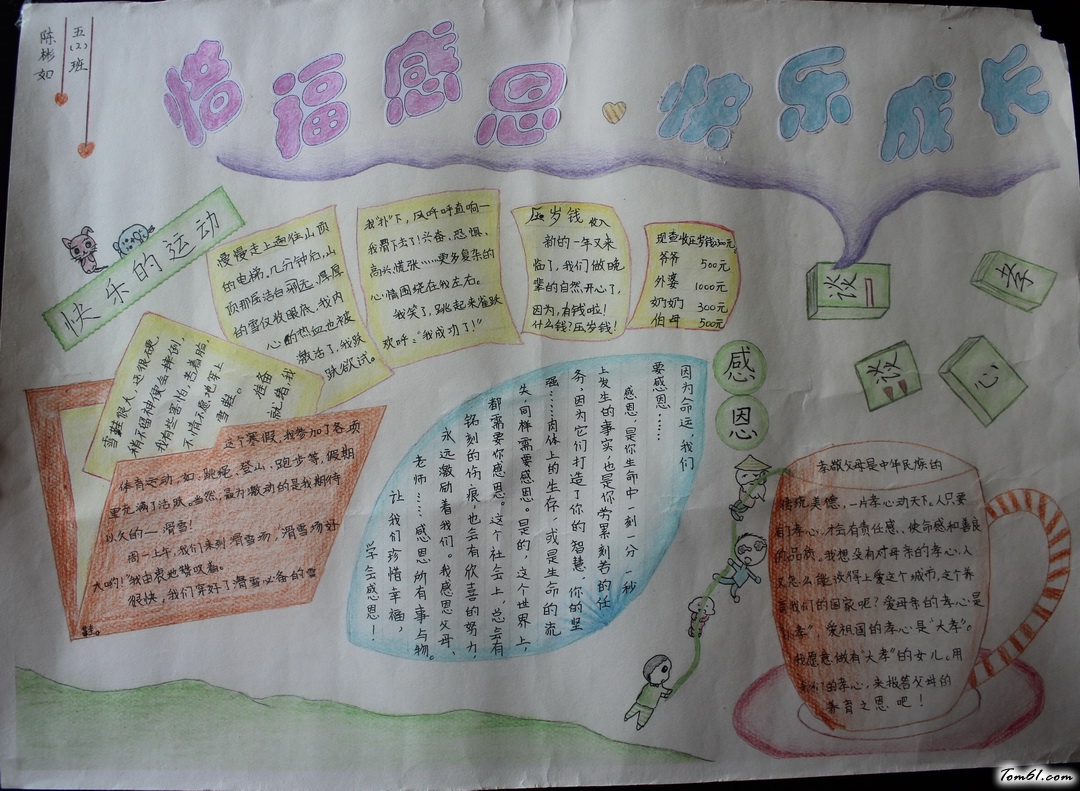 五(2)班
陈彬如
惜福感恩 快乐成长
快乐的运动
这个寒假,我参加了各项
体育运动,如:跳绳、登山、跑步等,假期
里充满了活跃。当然,最为激动的是我期待
以久的——滑雪!
周一上午,我们来到滑雪场,“滑雪场好
大哟!”我由衷地赞叹着。
很快,我们穿好了滑雪必备的雪
鞋。
雪鞋很大,还很硬,
稍不留神便会摔倒,
我有些害怕,苦着脸,
不情不愿地穿上
雪鞋。
准备
就绪,我
慢慢走上通往山顶
的电梯,几分钟后,山
顶那层洁白明亮、厚厚
的雪仅收眼底,我内
心的热血也被
激活了,我跃
跃欲试。
我“扑”下,风呼呼直响—
我滑下去了!兴奋、恐惧、
高兴慌张……更多复杂的
心情围绕在我左右。
我笑了,跳起来雀跃
欢呼:“我成功了!”
压岁钱收入
新的一年又来
临了,我们做晚
辈的自然开心了,
因为,有钱啦!
什么钱?压岁钱!
爷爷 500元
外婆 1000元
奶奶 300元
伯母 500元
谈一
谈
孝
心
感恩
因为命运,我们
要感恩……
感恩,是你生命中一刻一分一秒
上发生的事实,也是你劳累刻苦的任
务,因为它们打造了你的智慧、你的坚
强……肉体上的生存,或是生命的流
失,同样需要感恩。是的,这个世界上,
都需要你感恩。这个社会上,总会有
铭刻的伤痕,也会有欣喜的努力,
永远激励着我们。我感恩父母,
老师……感恩所有事与物。
让我们珍惜幸福,
学会感恩!
孝敬父母是中华民族的
传统美德,一片孝心动天下。人只要
有孝心,才会有责任感、使命感和善良
的品质。我想没有对母亲的孝心,人
又怎么能谈得上爱这个城市,这个养
育我们的国家呢?爱母亲的孝心是
“孝”,爱祖国的孝心是“大孝”。
我愿意做有“大孝”的女儿。用
我们的孝心,来报答父母的
养育之恩吧!
Tom61.com